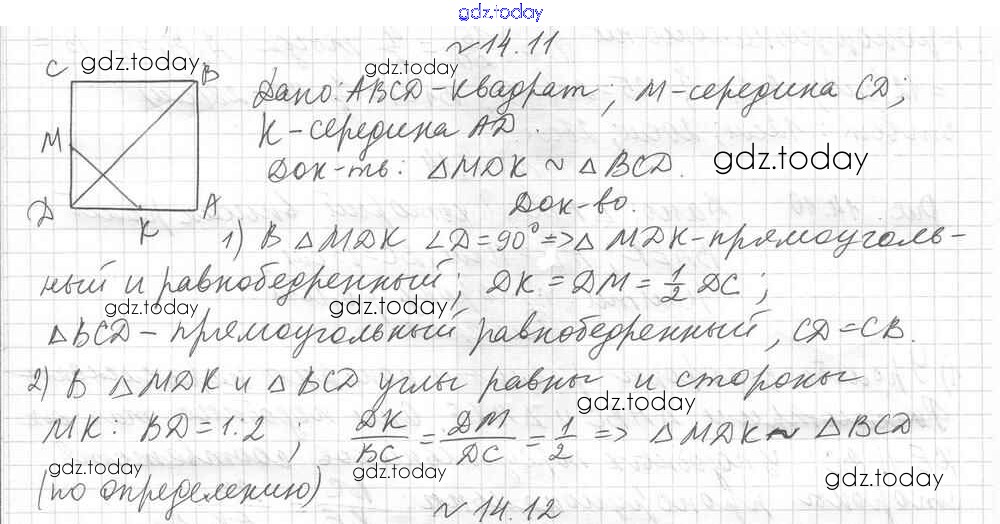 gdz.today
№ 14.11
C gdz.today B
gdz.today
Дано: ABCD-квадрат; M-середина CD;
M
K-середина AD.
Док-ть: △MDK ~ △BCD. gdz.today
D K A
Док-во.
1) В △MDK ∠D=90°=>△ MDK-прямоуголь-
ный и равнобедренный; DK = DM = 1/2 DC;
gdz.today gdz.today
△BCD- прямоугольный равнобедренный, CD=CB.
2) В △MDK и △BCD углы равны и стороны
gdz.today
MK: BD=1:2; DK/BC = DM/DC = 1/2 => △MDK ~ △BCD
gdz.today gdz.today gdz.today
(по определению)
№ 14.12